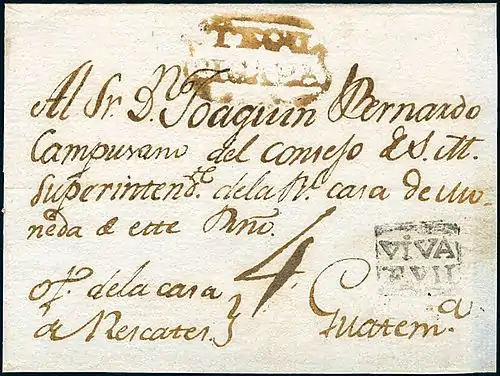 TEGU
CIGALPA
Al Sr. Dn. Joaquin Bernardo
Campusano del Consejo de S. M.
Superintendte. de la Rl. casa de Mo-
neda de este Rno.
4
VIVA
F.VII
of. de la casa
de Rescates
Guatema.